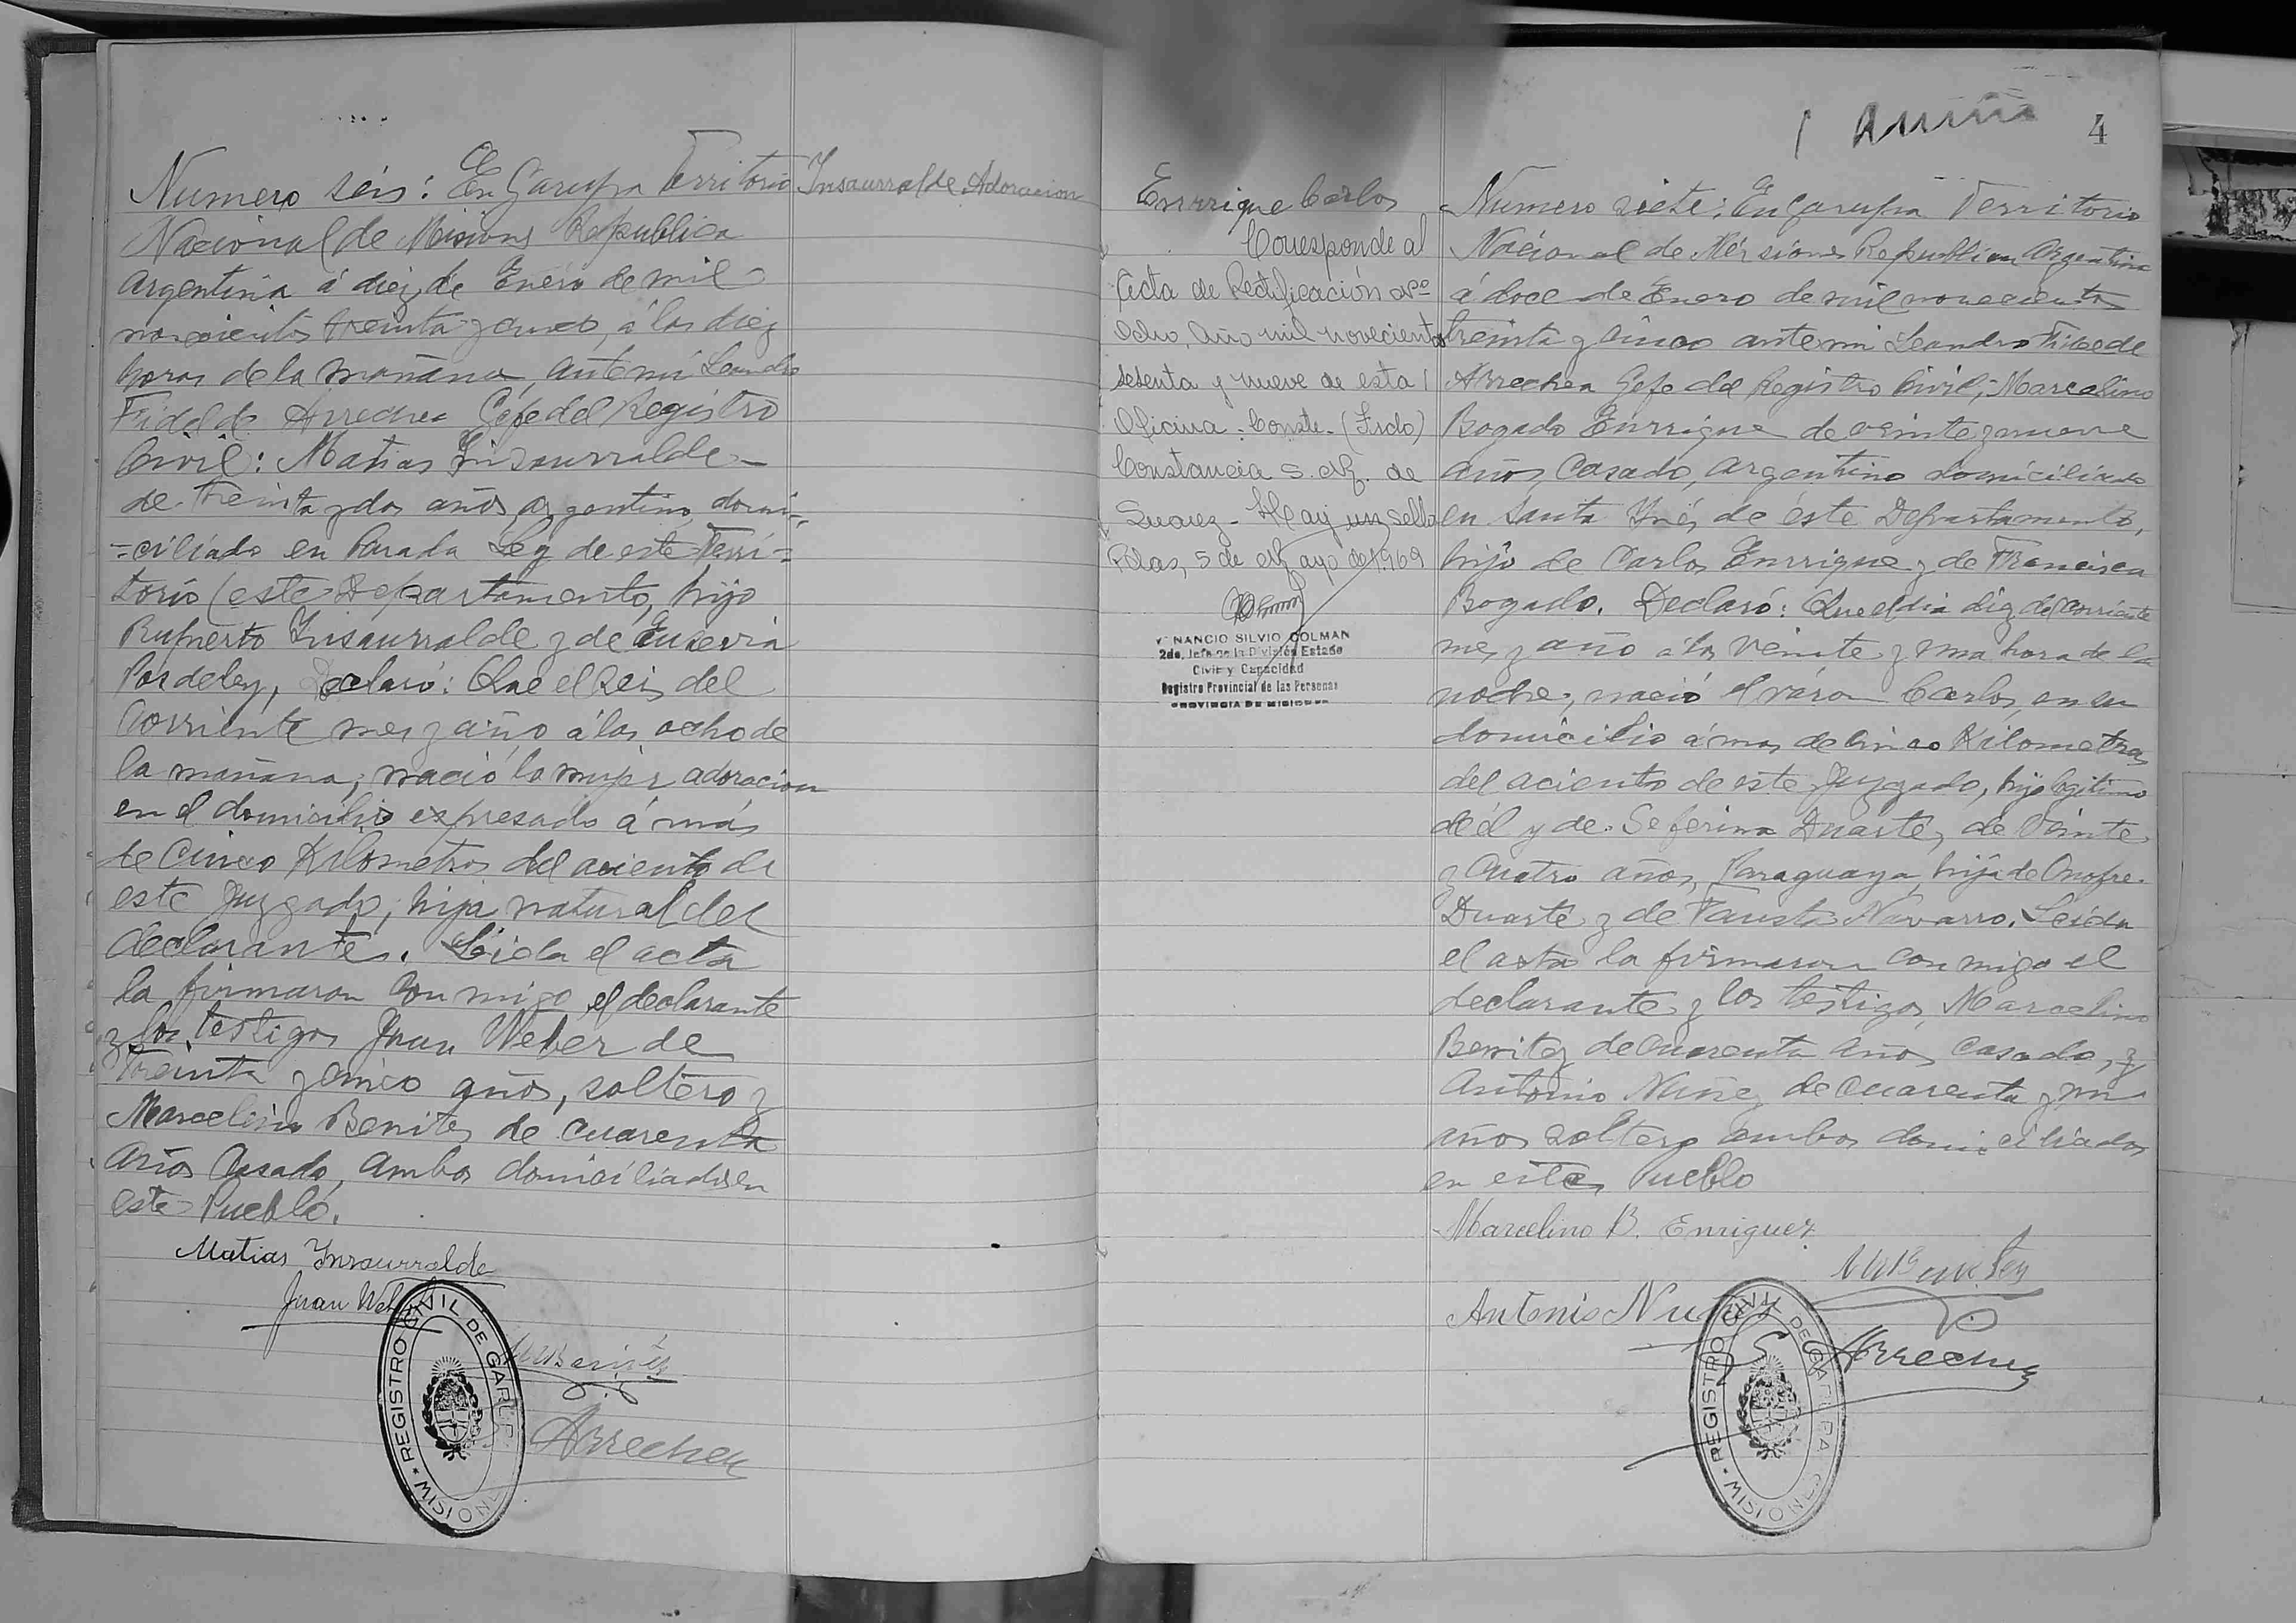 Numero seis: En Garupa Territorio
Nacional de Misiones Republica
Argentina á diez de Enero de mil
novecientos treinta y cinco, á las diez
horas de la mañana, ante mí Leandro
Fidel de Arrechea Gefe del Registro
Civil: Matias Insaurralde
de treinta y dos años argentino, domi-
=ciliado en Parada Leg de este Terri=
torio (este Departamento, hijo
Ruperto Insaurralde y de Eusevia
Declaró: Que el seis del
corriente mes y año á las ocho de
la mañana, nació la mujer adoracion
en el domicilio expresado á más
de cinco Kilometros del aciento de
este Juzgado, hija natural del
declarante. Leida el acta
la firmaron conmigo el declarante
y los testigos Juan Weber de
treinta y cinco años, soltero y
Marcelino Benitez de cuarenta
años casado, ambos domiciliados en
este Pueblo.
Matias Insaurralde
Juan Weber
M Benitez
Arrechea
REGISTRO CIVIL DE GARUPA * MISIONES
Insaurralde Adoracion
4
Enrrique Carlos
Corresponde al
Acta de Rectificación Nº
ocho, Año mil novecientos
sesenta y nueve de esta
Oficina - Conste - (Fdo)
Constancia S. M. de
Suarez - Hay un sello
Pdas, 5 de Mayo de 1969
VENANCIO SILVIO COLMAN
2do. Jefe de la División Estado
Civil y Capacidad
Registro Provincial de las Personas
PROVINCIA DE MISIONES
Numero siete: En Garupa Territorio
Nacional de Misiones Republica Argentina
á doce de Enero de mil novecientos
treinta y cinco ante mi Leandro Fidel de
Arrechea Gefe del Registro Civil; Marcelino
Bogado Enrrique de veinte y nueve
años, casado, argentino domiciliado
en Santa Inés de éste Departamento,
hijo de Carlos Enrrique y de Francisca
Bogado. Declaró: Que el dia diez del corriente
mes y año á las veinte y una hora de la
noche, nació el varon Carlos, en su
domicilio á mas de cinco Kilometros
del aciento de este Juzgado, hijo legitimo
de él y de Seferina Duarte, de veinte
y cuatro años, Paraguaya, hija de Onofre
Duarte y de Fausta Navarro. Leida
el acta la firmaron conmigo el
declarante y los testigos, Marcelino
Benitez de cuarenta años casado, y
Antonio Nuñez de cuarenta y un
años soltero ambos domiciliados
en este Pueblo
Marcelino B. Enriquez
Antonio Nuñez
Arrechea
REGISTRO CIVIL DE GARUPA * MISIONES